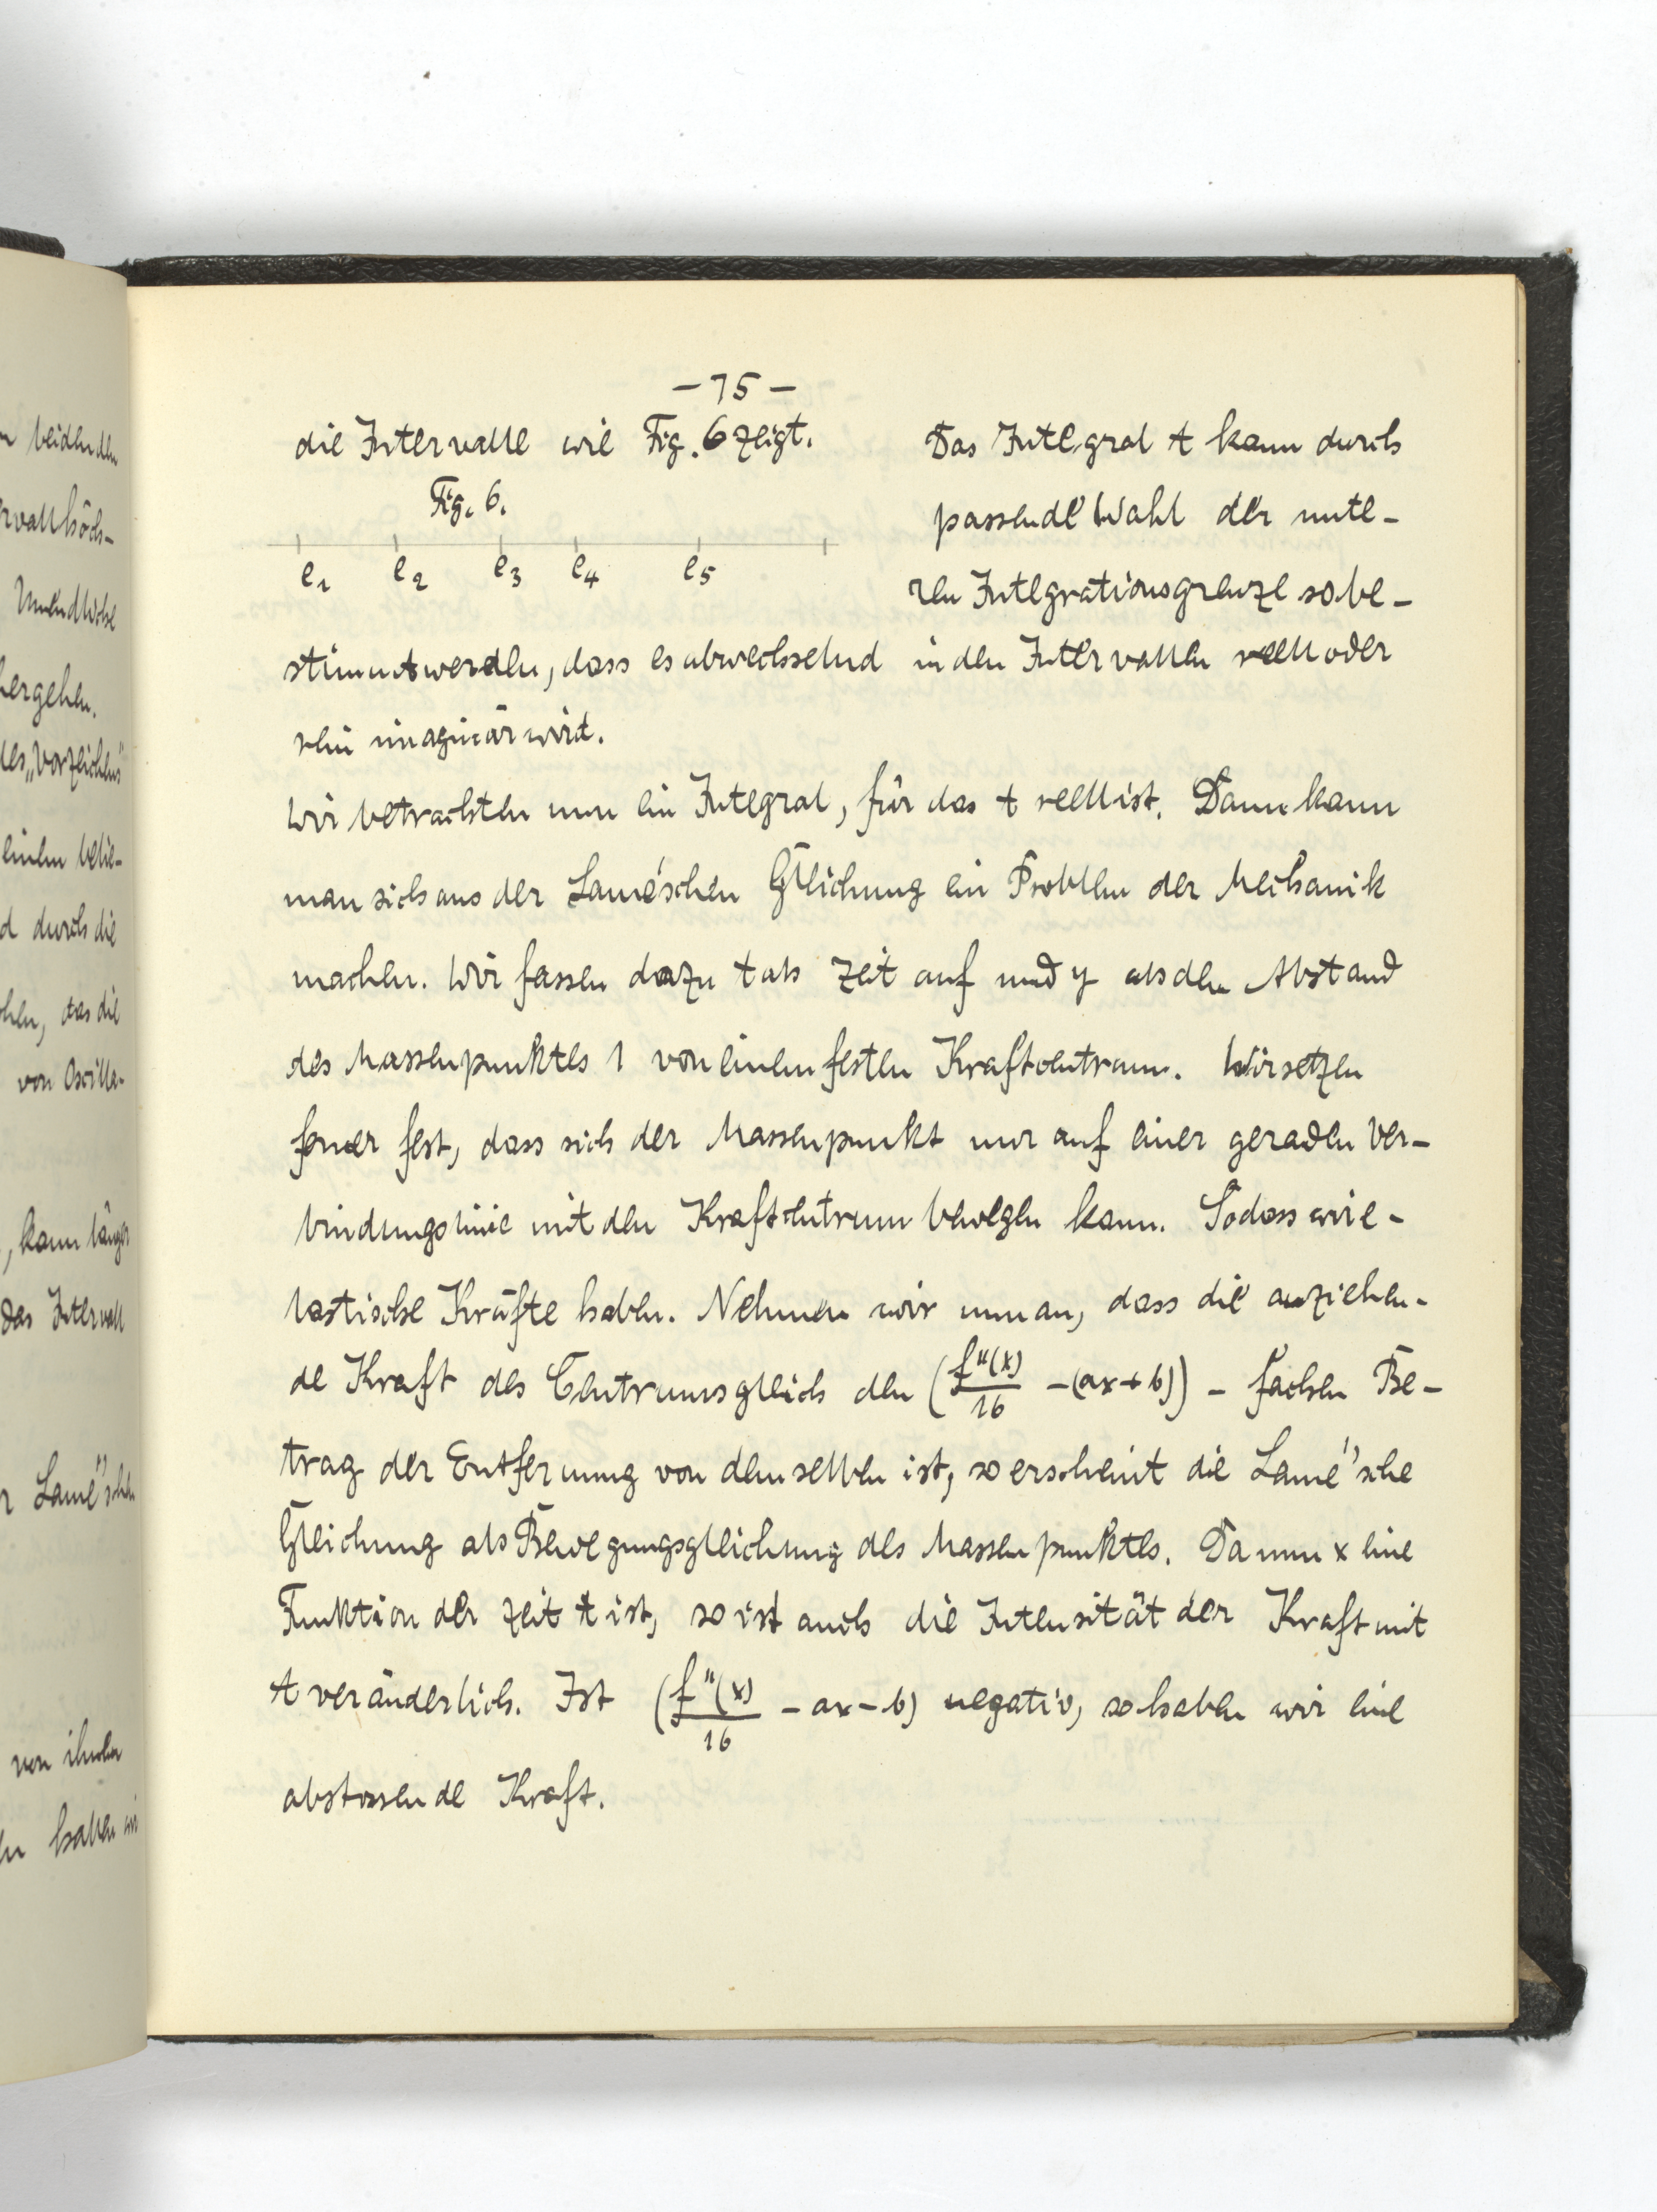 - 75 -
die Intervalle wie Fig. 6 zeigt.
Fig. 6.
e1 e2 e3 e4 e5
Das Integral t kann durch
passende Wahl der unte-
ren Integrationsgrenze so be-
stimmt werden, dass es abwechselnd in den Intervallen reell oder
rein imaginär wird.
Wir betrachten nun ein Integral, für das t reell ist. Dann kann
man sich aus der Lamé'schen Gleichung ein Problem der Mechanik
machen. Wir fassen dazu t als Zeit auf und y als den Abstand
des Massenpunktes 1 von einem festen Kraftcentrum. Wir setzen
ferner fest, dass sich der Massenpunkt nur auf einer geraden Ver-
bindungslinie mit den Kraftcentrum bewegen kann. Sodass wir e-
lastische Kräfte haben. Nehmen wir nun an, dass die anziehen-
de Kraft des Centrums gleich den (f"(x)/16 - (ax + b)) - fachen Be-
trag der Entfernung von demselben ist, so erscheint die Lamé'sche
Gleichung als Bewegungsgleichung des Massenpunktes. Da nun x eine
Funktion der Zeit t ist, so ist auch die Intensität der Kraft mit
t veränderlich. Ist (f"(x)/16 - ax - b) negativ, so haben wir eine
abstossende Kraft.